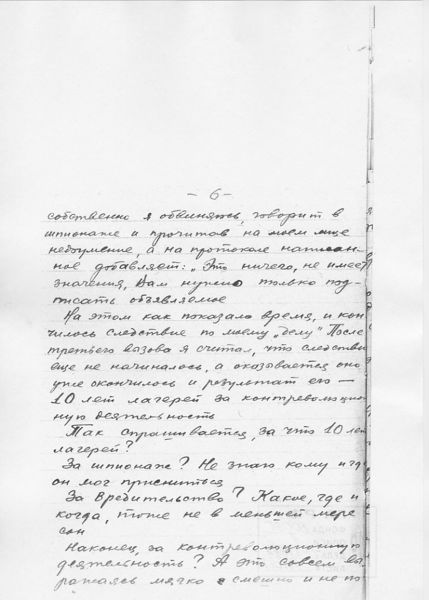 - 6 -
собственно я обвиняюсь, говорит в
шпионаже и прочитав на моем лице
недоумение, а на протоколе написан-
ное добавляет: „Это ничего, не имеет
значения, Вам нужно только под-
писать объявляемое
На этом как показало время, и кон
чилось следствие по моему „делу" После
третьего вызова я считал, что следстви
еще не начиналось, а оказывается оно
уже окончилось и результат его —
10 лет лагерей за контрреволюцион
ную деятельность
Так спрашивается, за что 10 лет
лагерей?
За шпионаж? Не знаю кому и где
он мог присниться
За вредительство? Какое, где и
когда, тоже не в меньшей мере
сон
Наконец, за контрреволюционную
деятельность? А это совсем вы
ражаясь мягко смешно и не по